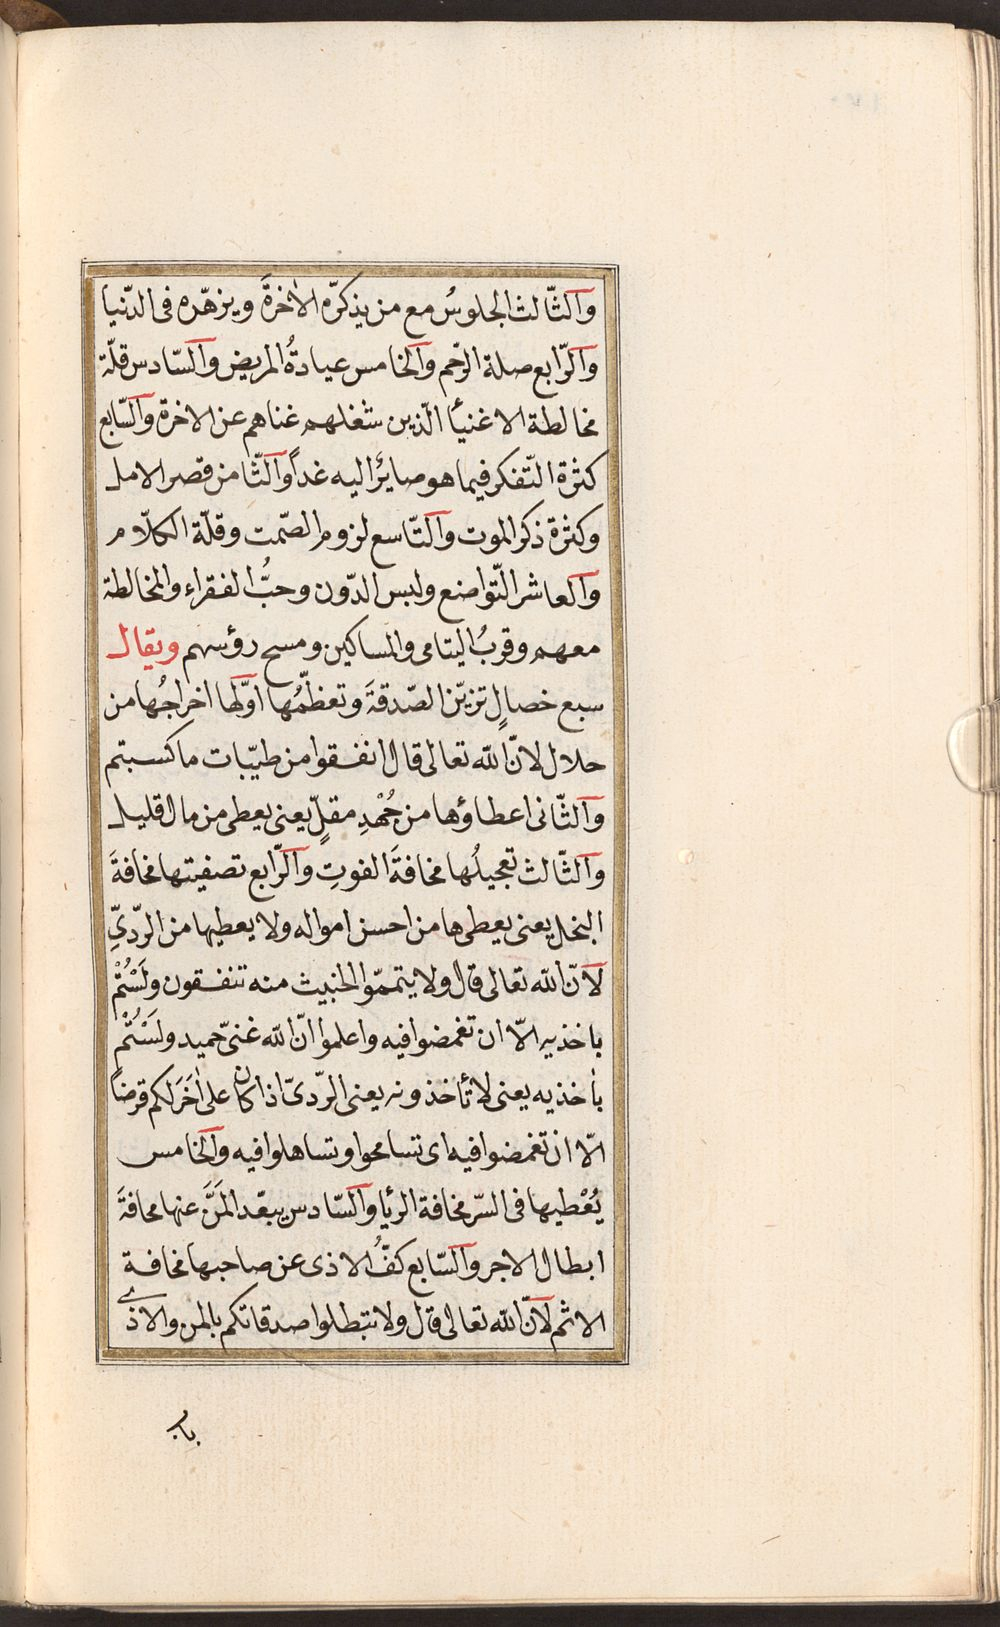 والثّالث الجلوسُ مع من يذكرّه الاٰخرةَ ويزهّده فى الدّنيا
والرّابع صلة الرّحم والخامس عيادةُ المريض والسّادس قلّة
مخالطة الاغنيأ الّذين شغلهم غناهم عن الاخرة والسّابع
كثرة التّفكر فيما هو صائرٌ اليه غداً والثّامن قصر الامل
وكثرة ذكر الموت والتّاسع لزوم الصّمت وقلّة الكلام
والعاشر التّواضع ولبس الدّون وحبُّ الفقراء والمخالطة
معهم وقربُ اليتامى والمساكين ومسح رؤسهم ويقال
سبع خصالٍ تزيّن الصّدقةَ وتعظّمُها اوّلها اخراجُها من
حلال لانّ الله تعالى قال انفقوا من طيّبات ما كسبتم
والثّانى اعطاؤها من جُهْدِ مقلٍّ يعنى يعطى من مال قليل
والثّالث تعجيلُها مخافةَ الفوتِ والرّابع تصفيتها مخافةَ
البخل يعنى يعطى ها من احسن امواله ولا يعطيها من الرّدىِّ
لانّ الله تعالى قال ولا يتممّوا الخبيث منه تنفقون ولَسْتُمْ
باخذيه الّا ان تغمضوا فيه واعلموا انّ الله غنىّ حميد ولَسْتُمْ
باٰخذيه يعنى لا تأخذونه يعنى الرّدىّ اذا كان على اٰخَرَ لكم قرضاً
الّا ان تغمضوا فيه اى تسامحوا وتساهلوا فيه والخامس
يُعْطيها فى السّر مخافة الرئا والسّادس يبعّد المَنَّ عنها مخافةَ
ابطال الاجر والسّابع كفُّ الاذى عن صاحبها مخافة
الاثم لانّ الله تعالى قال ولا تبطلوا صدقاتكم بالمن والاذى
باب